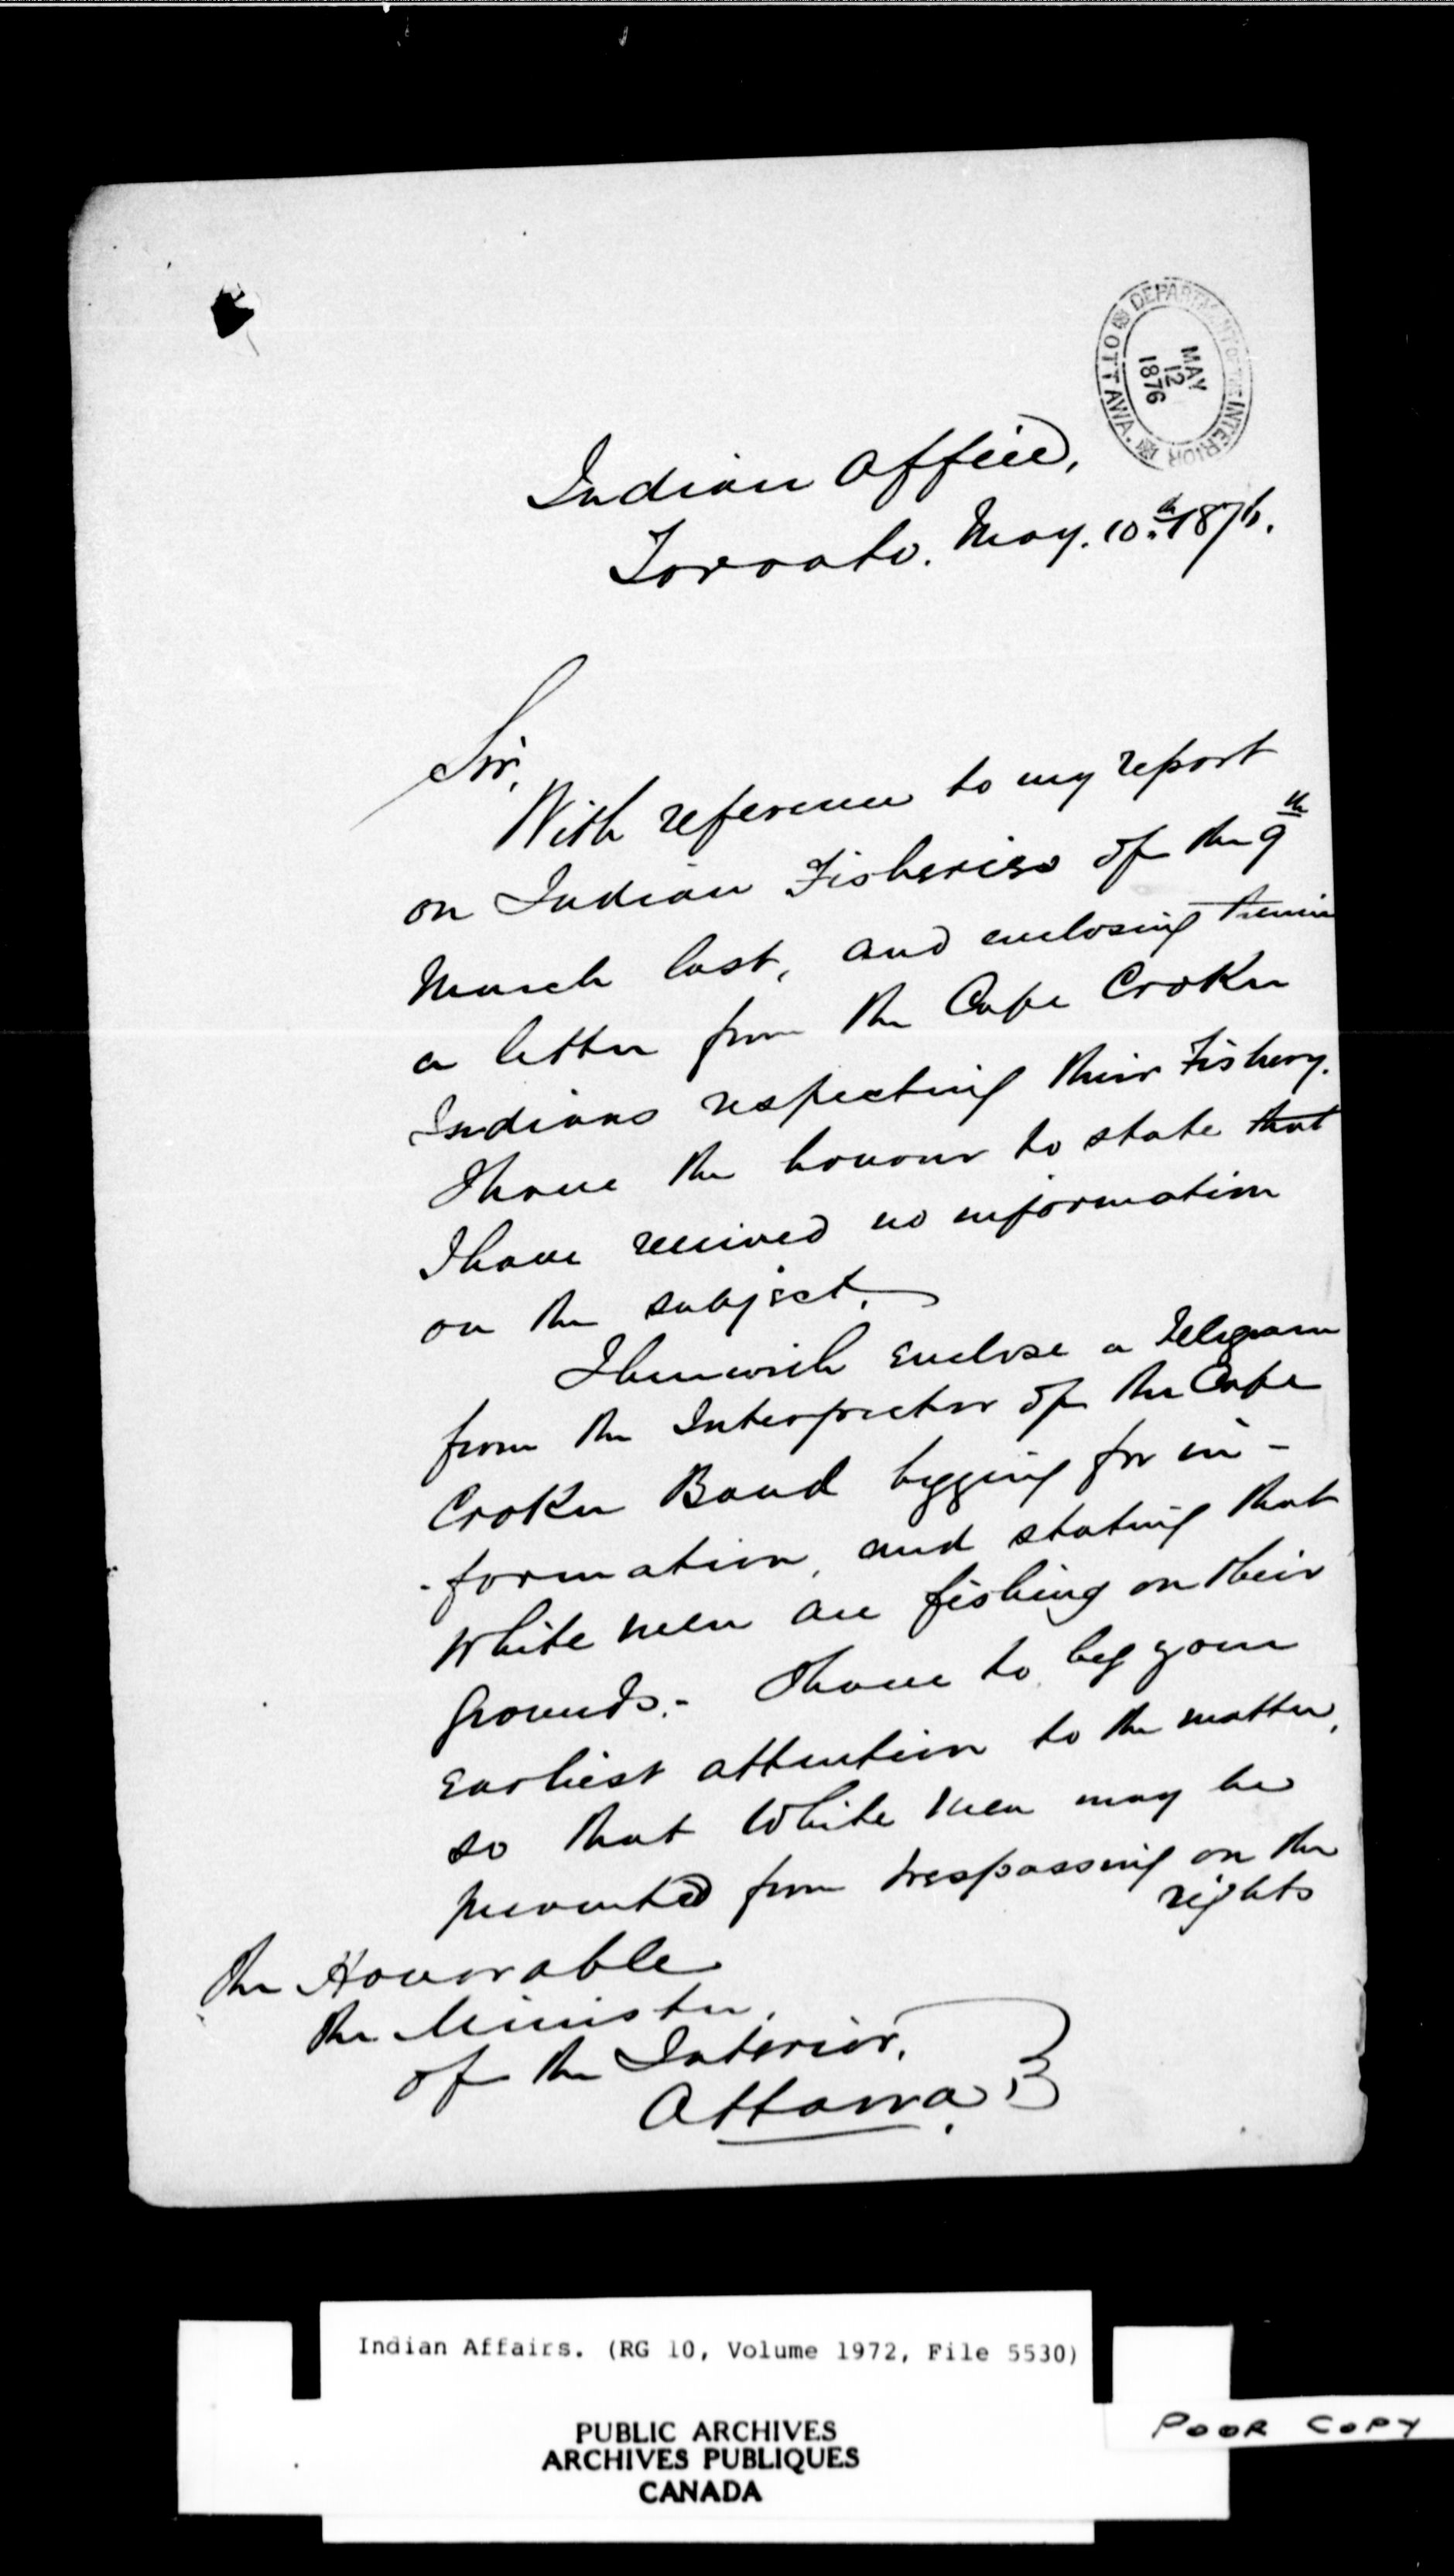 DEPARTMENT OF THE INTERIOR
MAY
12
1876
OTTAWA.
Indian Office,
Toronto. May. 10th 1876.
Sir,
With reference to my report
on Indian Fisheries of the 9th
March last, and enclosing therein
a letter from the Cape Croker
Indians respecting their Fishery.
I have the honour to state that
I have received no information
on the subject.
I herewith enclose a Telegram
from the Interpreter of the Cape
Croker Band begging for in-
-formation, and stating that
White men are fishing on their
grounds.- I have to beg your
earliest attention to the matter,
so that White men may be
prevented from trespassing on the
rights
The Honorable
the Minister,
of the Interior.
Ottawa.
Indian Affairs. (RG 10, Volume 1972, File 5530)
PUBLIC ARCHIVES
ARCHIVES PUBLIQUES
CANADA
POOR COPY